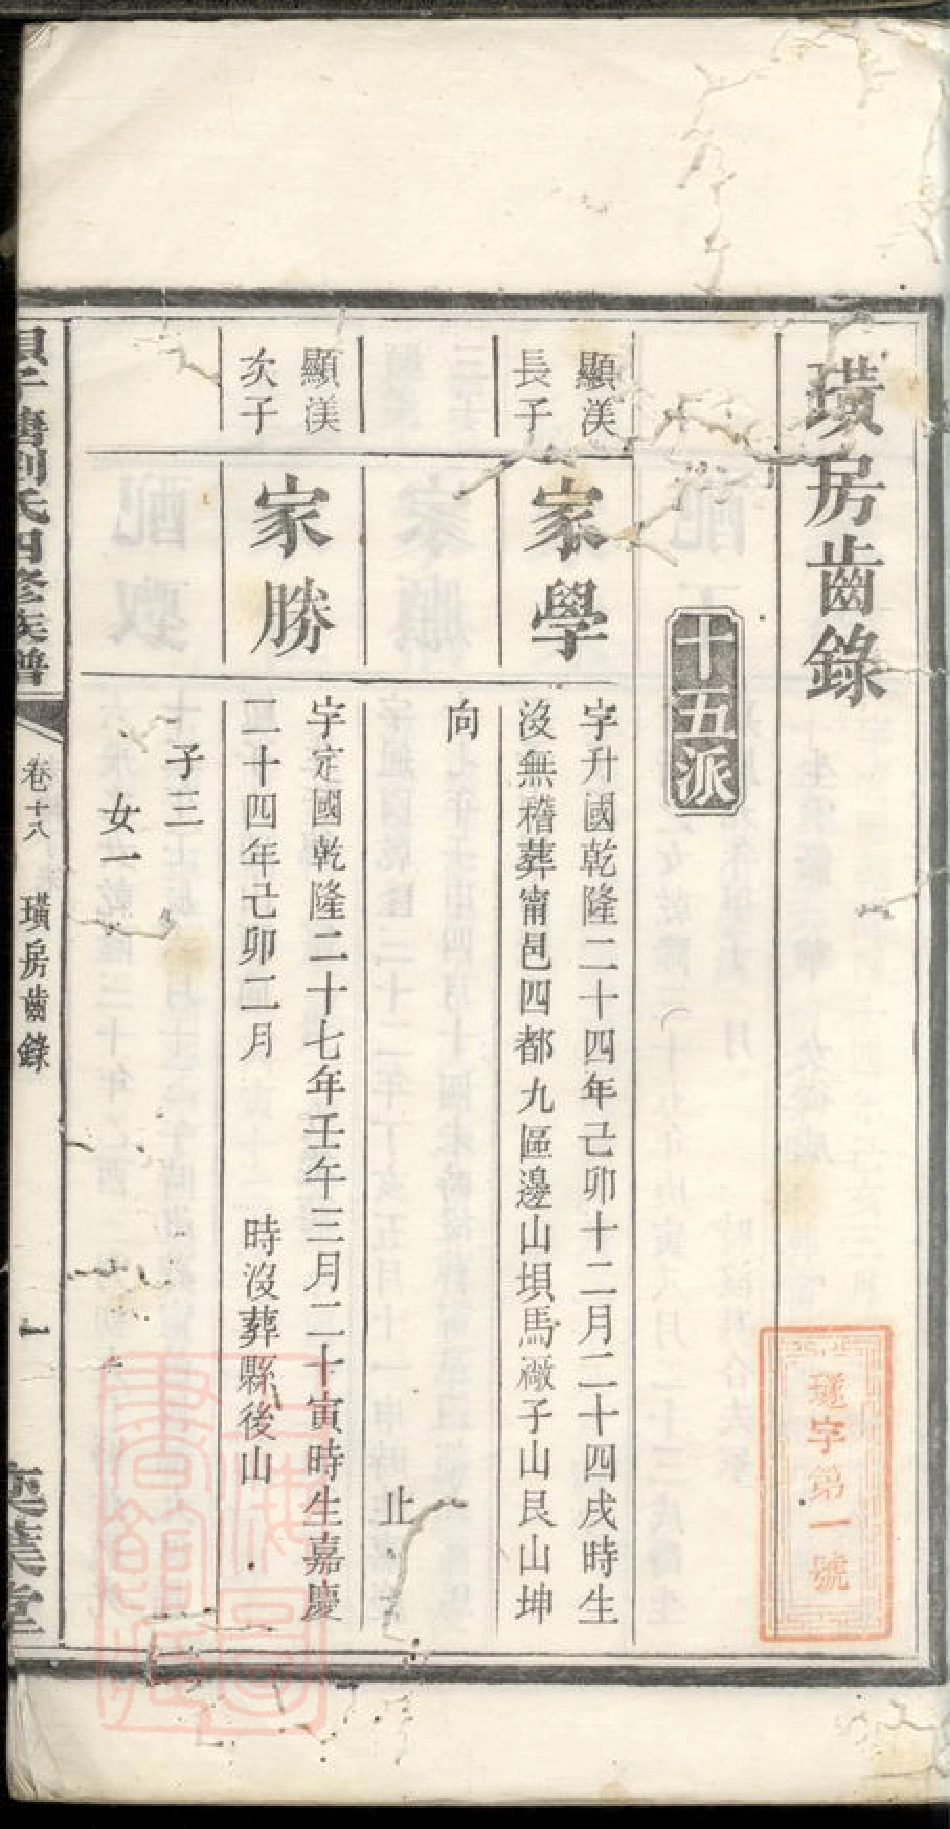 璜房齒錄
十五派
顯渼
長子
家學
字升國乾隆二十四年己卯十二月二十四戌時生
沒無稽葬甯邑四都九區邊山垻馬𥛚子山艮山坤
向
止
顯渼
次子
家勝
字定國乾隆二十七年壬午三月二十寅時生嘉慶
二十四年己卯二月 時沒葬縣後山
子三
女一
劉氏四修族譜
卷十八 璜房齒錄
一
字第一號